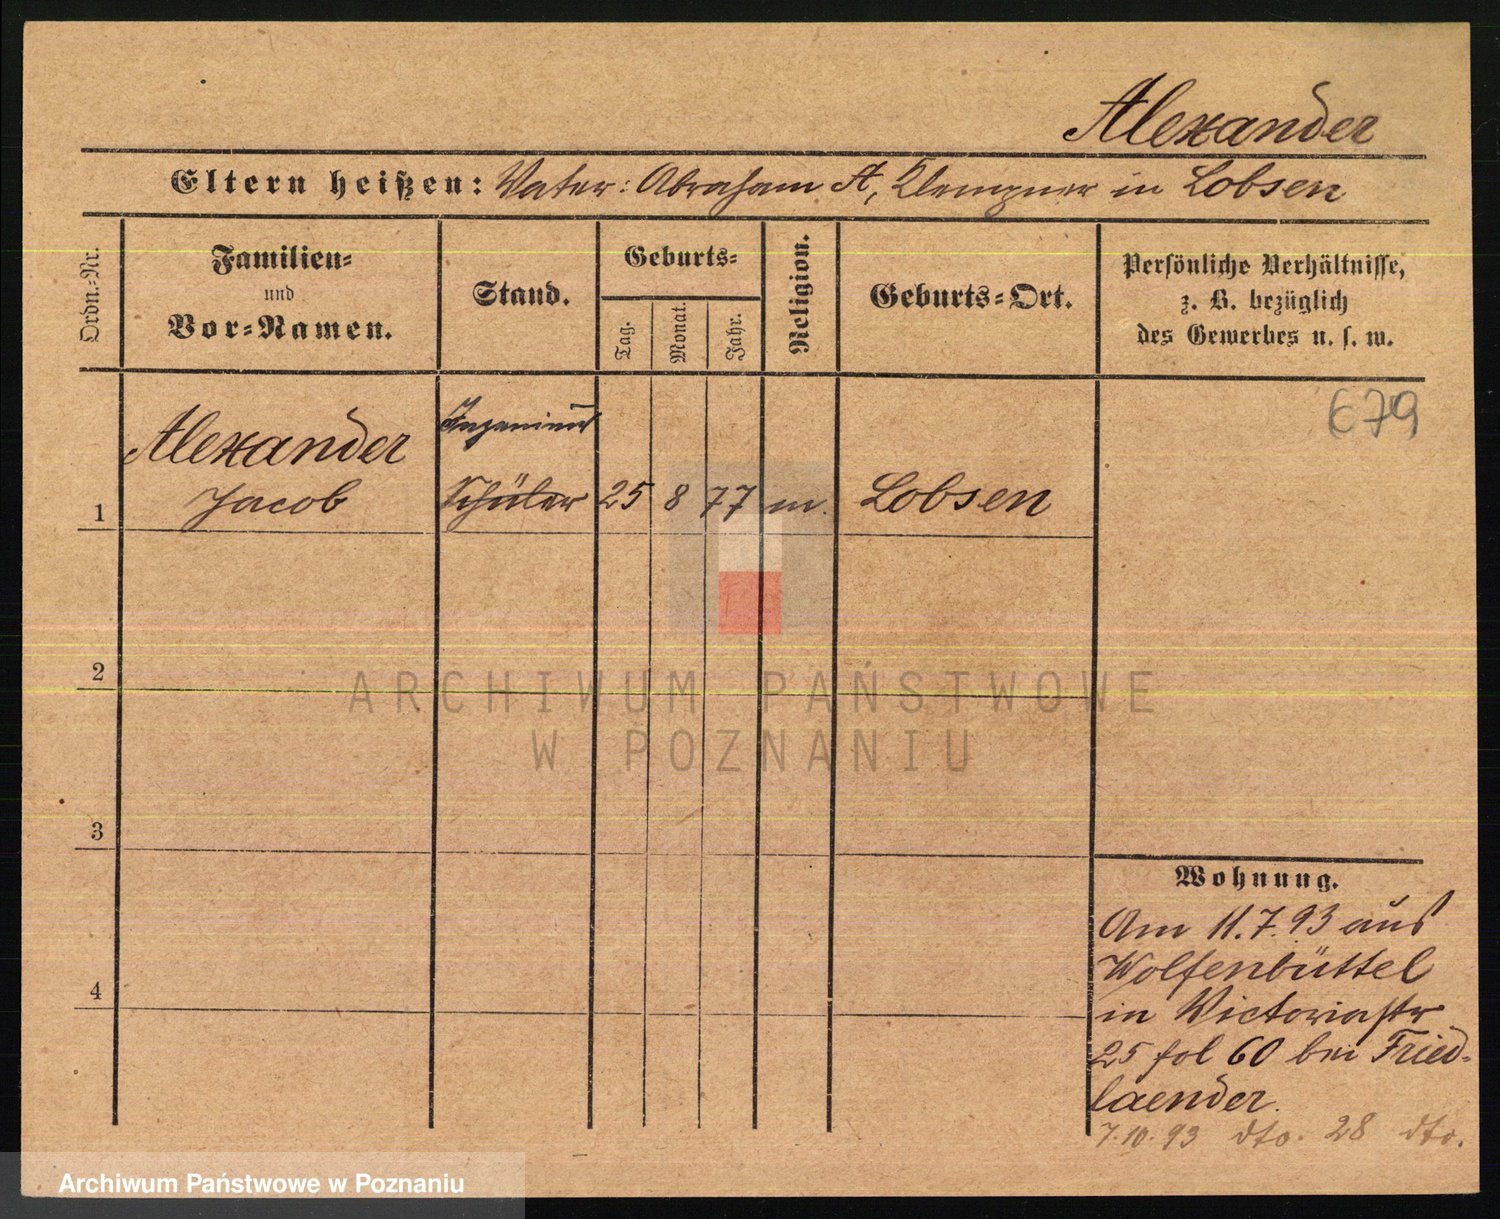 Alexander
Eltern heißen: Vater: Abraham A, Klempner in Lobsen
Ordn.-Nr.
Familien-
und
Vor-Namen.
Stand.
Geburts-
Tag.
Monat.
Jahr.
Religion.
Geburts-Ort.
Persönliche Verhältnisse,
z. B. bezüglich
des Gewerbes u. s. w.
679
Alexander Ingenieur
1 Jacob Schüler 25 8 77 m. Lobsen
2
ARCHIWUM PAŃSTWOWE
W POZNANIU
3
4
Wohnung.
Am 11.7.93 aus
Wolfenbüttel
in Victoriastr
25 fol 60 bei Fried-
laender.
7.10.93 dto. 28 dto.
Archiwum Państwowe w Poznaniu